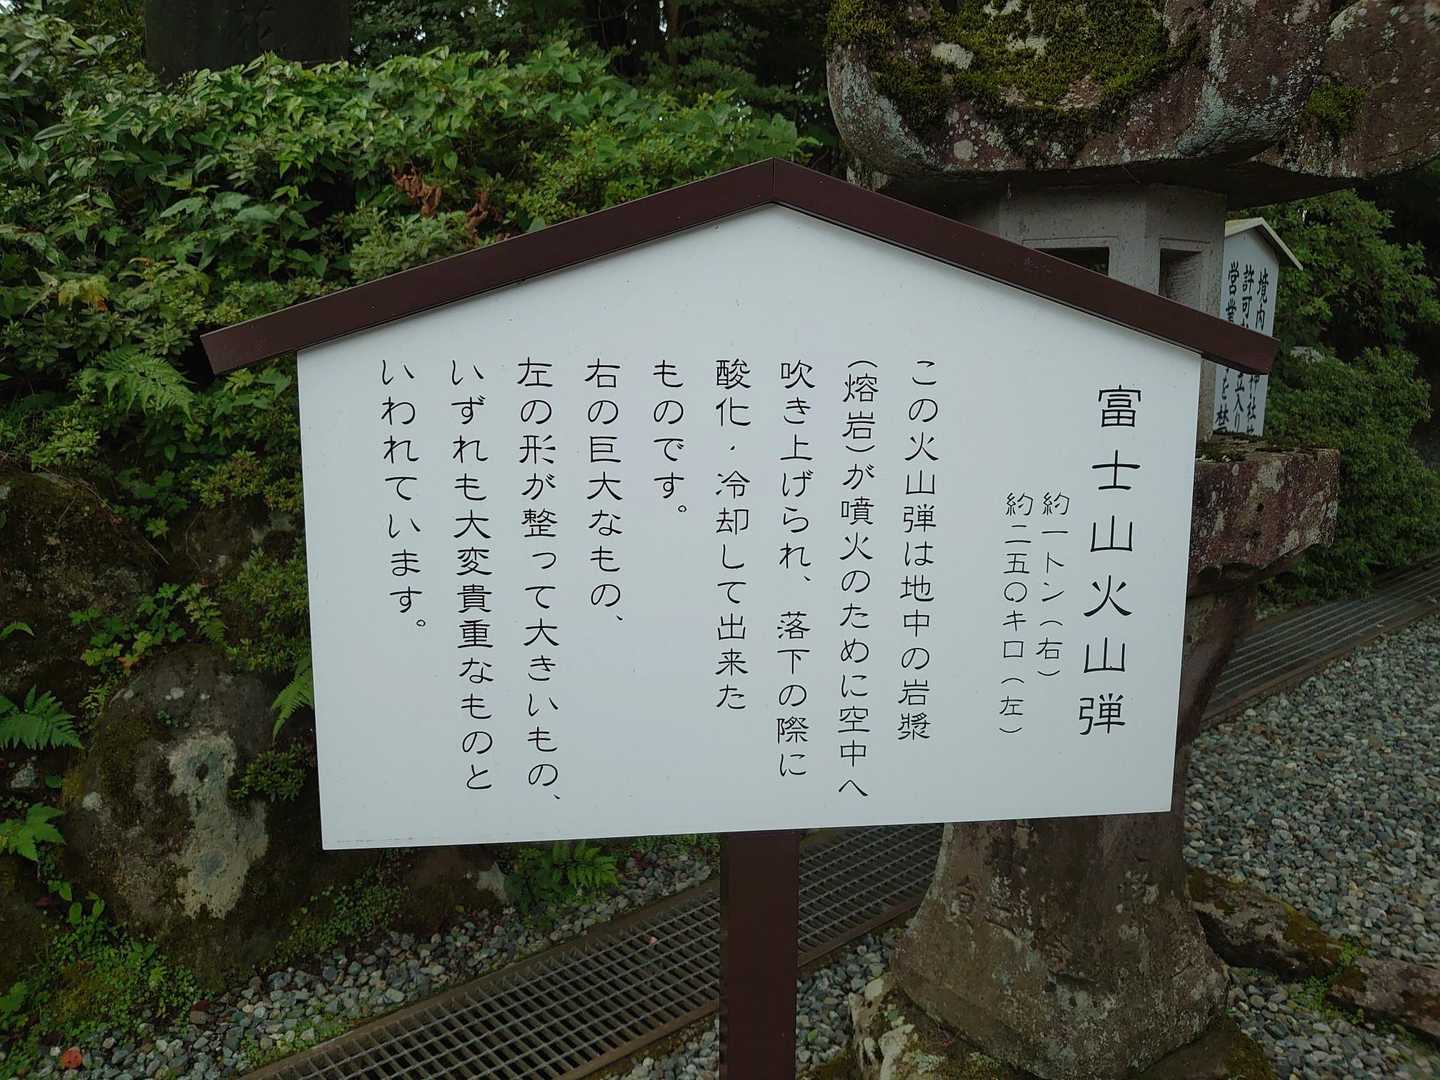 富士山火山弾
約一トン（右）
約二五〇キロ（左）
この火山弾は地中の岩漿
（熔岩）が噴火のために空中へ
吹き上げられ、落下の際に
酸化・冷却して出来た
ものです。
右の巨大なもの、
左の形が整って大きいもの、
いずれも大変貴重なものと
いわれています。
境内
許可
営業
神社
立入り
を禁